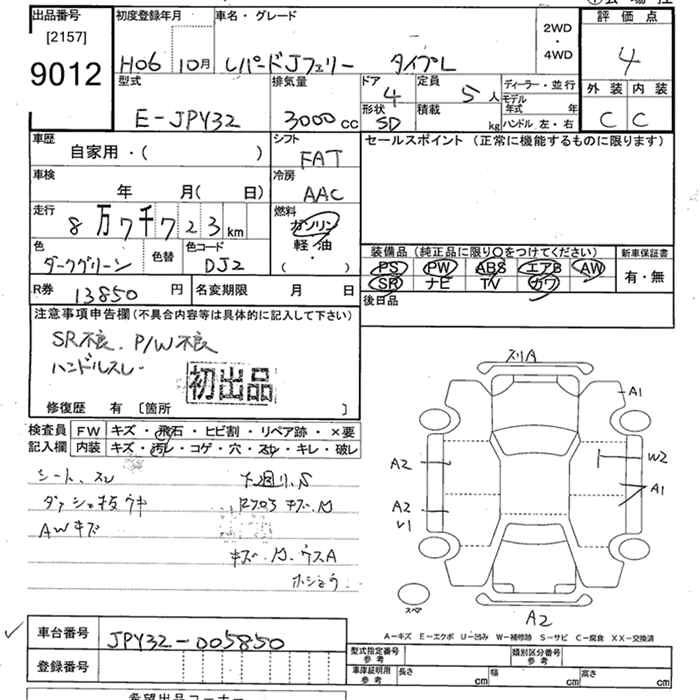 出品番号
[2157]
9012
初度登録年月
H06 10月
車名・グレード
レパードJフェリー タイプL
2WD
・
4WD
評価点
4
型式
E-JPY32
排気量
3000cc
ドア
4
形状
SD
定員
5人
積載
kg
ディーラー・並行
モデル年式 年
ハンドル 左・右
外装 内装
C C
車歴
自家用・( )
シフト
FAT
セールスポイント (正常に機能するものに限ります)
車検
年 月( 日)
冷房
AAC
走行
8万7千723km
燃料
ガソリン
軽・油
( ・ )
色
ダークグリーン
色替
色コード
DJ2
装備品(純正品に限り○をつけてください)
PS PW ABS エアB AW
SR ナビ TV カワ
新車保証書
有・無
R券
13850円
名変期限 月 日
後日品
注意事項申告欄(不具合内容等は具体的に記入して下さい)
SR不良、P/W不良
ハンドルスレ
初出品
修復歴 有 [箇所 ]
検査員
記入欄
FW キズ・飛石・ヒビ割・リペア跡・×要
内装 キズ・汚レ・コゲ・穴・スレ・キレ・破レ
シート、スレ
ダッシュ板ウキ
AWキズ
キズ・凹・ウスA
スリA
A1
A2
W2
A1
A2
V1
スペア
A2
A－キズ E－エクボ U－凹み W－補修跡 S－サビ C－腐食 XX－交換済
車台番号
JPY32-005850
登録番号
型式指定番号
参考
類別区分番号
参考
車庫証明用
参考
長さ cm
幅 cm
高さ cm
希望出品コーナー